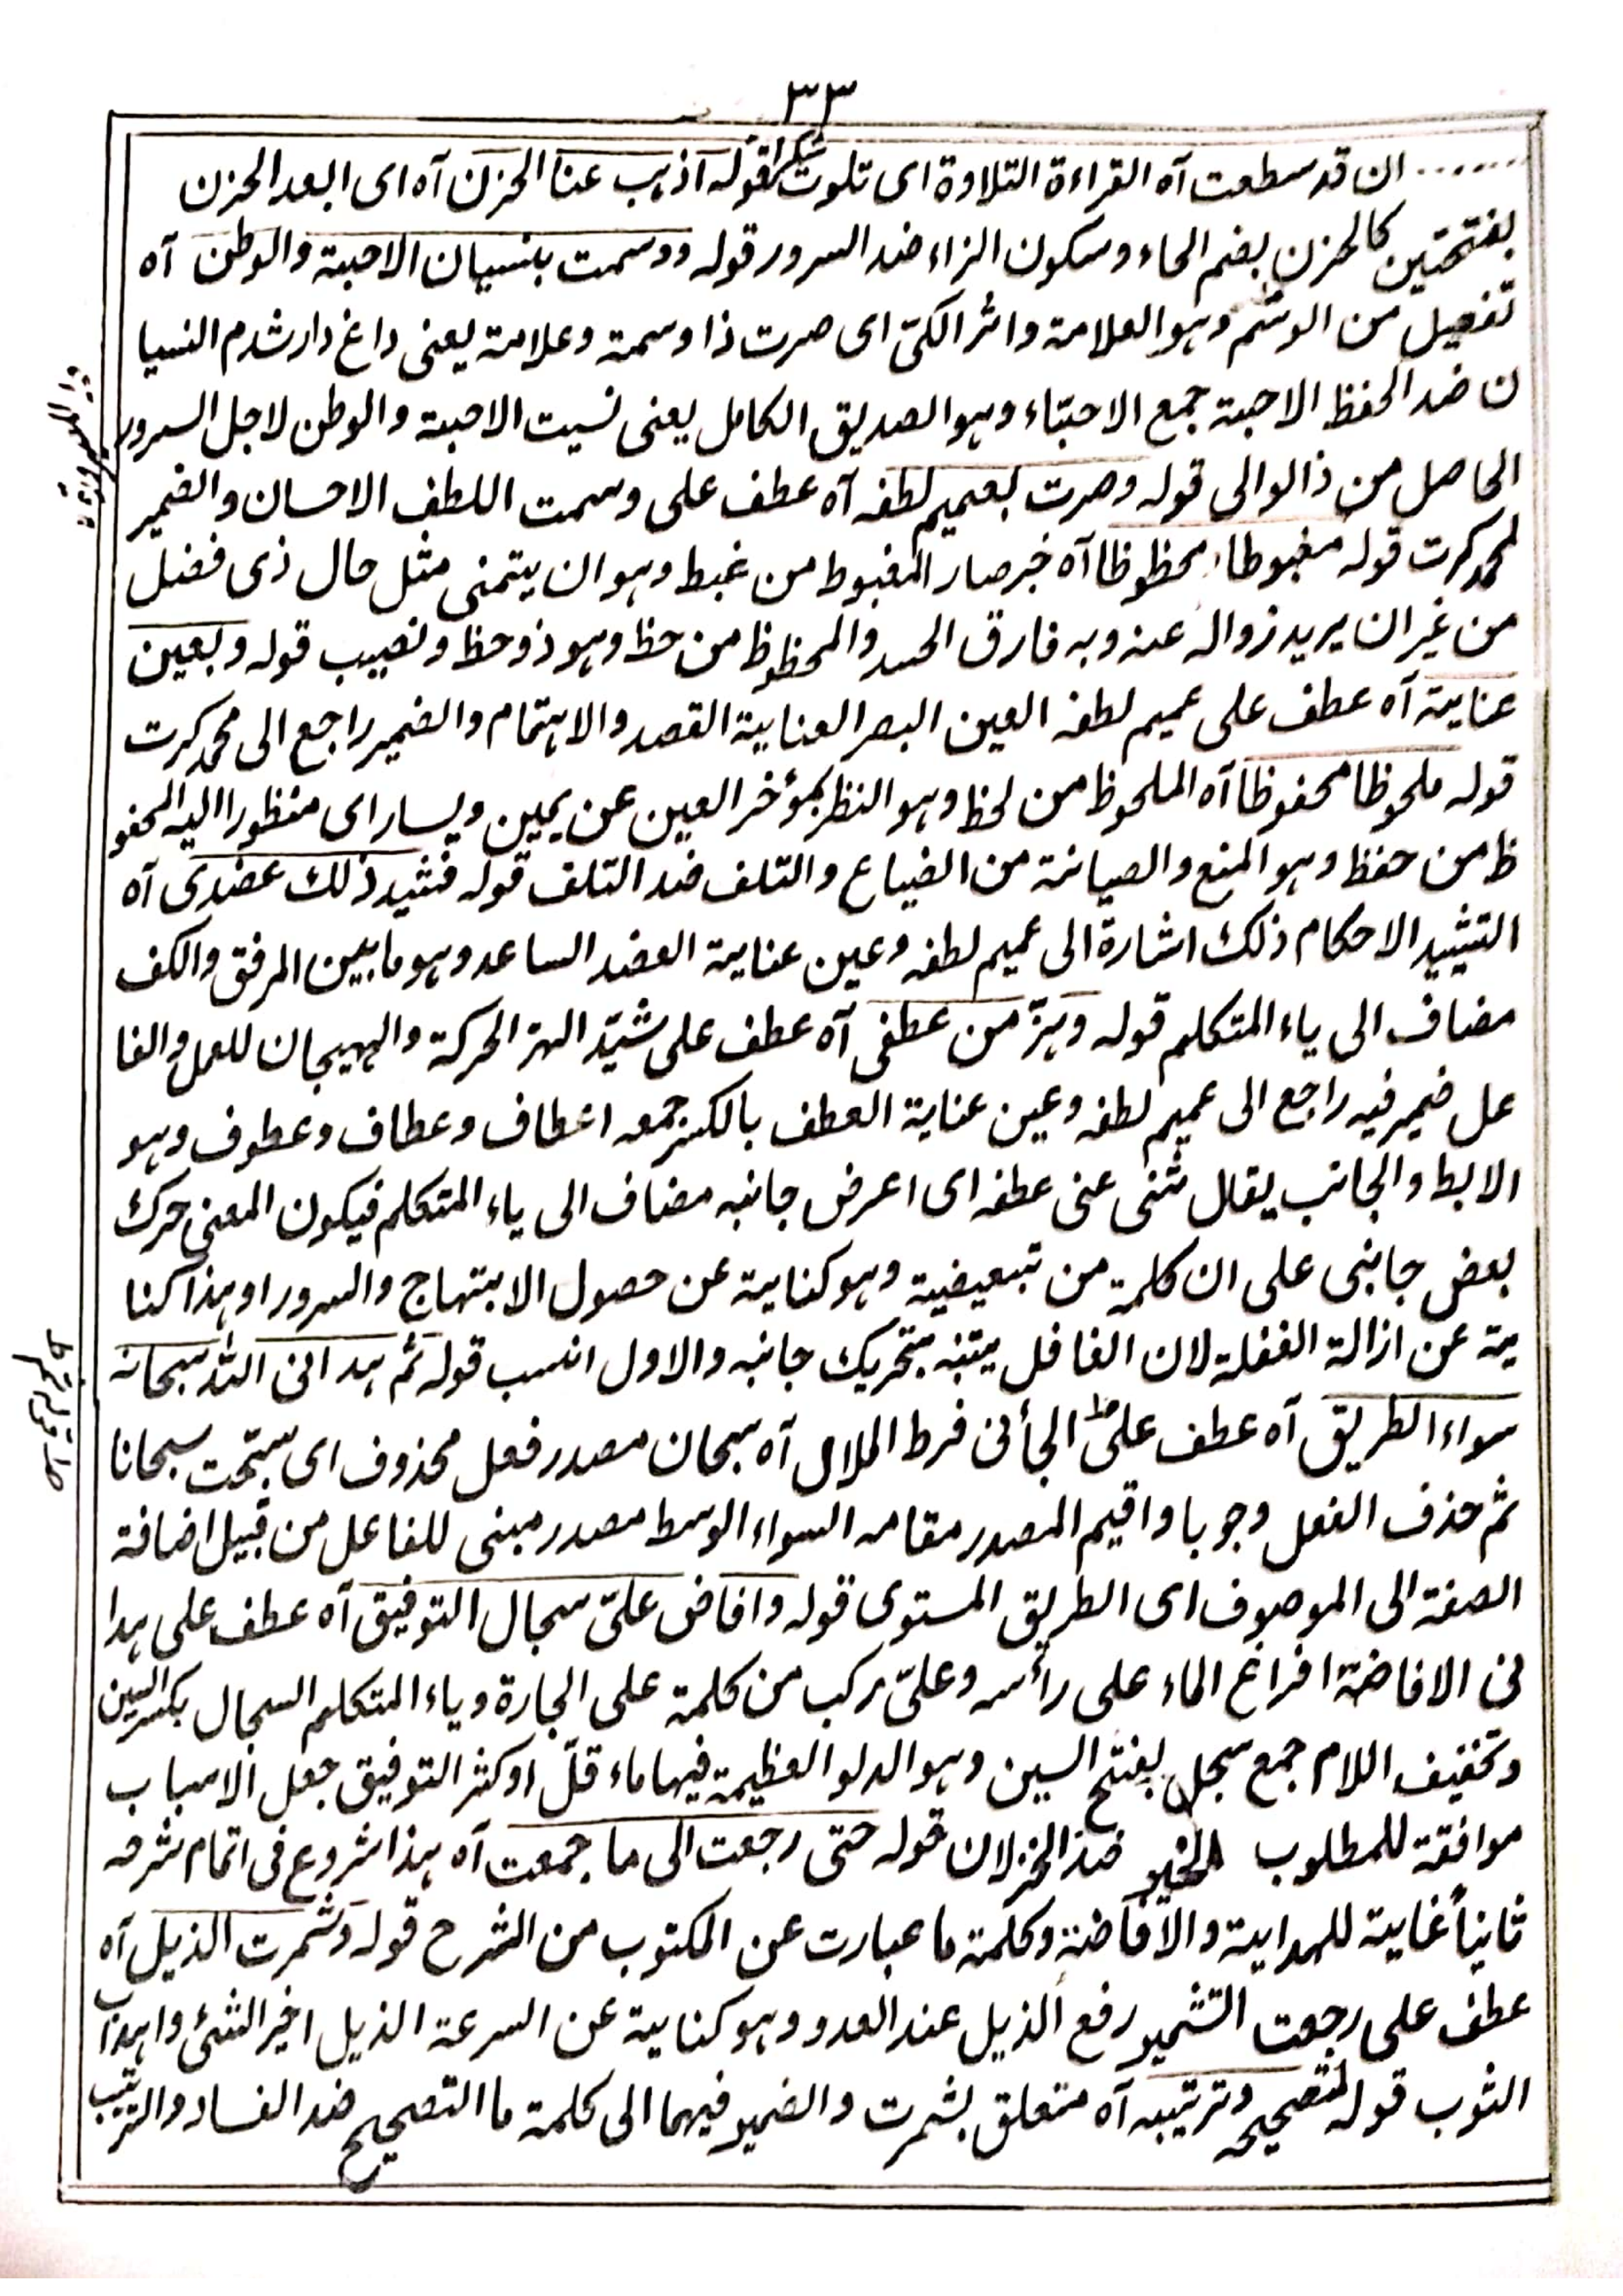 ٣٣
...... ان قد سطعت آه القراءة التلاوة ای تلوت شکرا قوله اذهب عنا الحزن آه ای ابعد الحزن
بفتحتین کالحزن بضم الحاء وسکون الزاء ضد السرور قوله ووسمت بنسیان الاحبة والوطن آه
تفعیل من الوسم وهو العلامة واثر الکیّ ای صرت ذا وسمة وعلامة یعنی داغ دار شدم النسیا
ن ضد الحفظ الاحبة جمع الاحبّاء وهو الصدیق الکامل یعنی نسیت الاحبة والوطن لاجل السرور
الحاصل من ذا الوالی قوله وصرت بعمیم لطفه آه عطف علی وسمت اللطف الاحسان والضمیر
لمحمد کرت قوله مغبوطا محظوظا آه خبر صار المغبوط من غبط وهو ان یتمنی مثل حال ذی فضل
من غیر ان یرید زواله عنه وبه فارق الحسد والمحظوظ من حظ وهو ذو حظ ونصیب قوله وبعین
عنایة آه عطف علی عمیم لطفه العین البصر العنایة القصد والاهتمام والضمیر راجع الی محمد کرت
قوله ملحوظا محفوظا آه الملحوظ من لحظ وهو النظر بمؤخر العین عن یمین ویسار ای منظورا الیه المحفو
ظ من حفظ وهو المنع والصیانة من الضیاع والتلف ضد التلف قوله فشید ذلك عضدی آه
التشیید الاحکام ذلك اشارة الی عمیم لطفه وعین عنایة العضد الساعد وهو ما بین المرفق والکف
مضاف الی یاء المتکلم قوله وهزّ من عطفی آه عطف علی شیّد الهز الحرکة والهیجان للعمل والفا
عل ضمیر فیه راجع الی عمیم لطفه وعین عنایة العطف بالکسر جمعه اعطاف وعطاف وعطوف وهو
الابط والجانب یقال ثنی عنی عطفه ای اعرض جانبه مضاف الی یاء المتکلم فیکون المعنی حرك
بعض جانبی علی ان کلمة من تبعیضیة وهو کنایة عن حصول الابتهاج والسرور او هذا کنا
یة عن ازالة الغفلة لان الغافل یتنبه بتحریك جانبه والاول انسب قوله ثم هدانی الله سبحانه
سواء الطریق آه عطف علی الجأنی فرط الملال آه سبحان مصدر فعل محذوف ای سبّحت سبحانا
ثم حذف الفعل وجوبا واقیم المصدر مقامه السواء الوسط مصدر مبنی للفاعل من قبیل اضافة
الصفة الی الموصوف ای الطریق المستوی قوله وافاض علیّ سجال التوفیق آه عطف علی هدا
نی الافاضة افراغ الماء علی رأسه وعلیّ مرکب من کلمة علی الجارة ویاء المتکلم السجال بکسر السین
وتخفیف اللام جمع سجل بفتح السین وهو الدلو العظیمة فیها ماء قلّ او کثر التوفیق جعل الاسباب
موافقة للمطلوب الخیر ضد الخزلان قوله حتی رجعت الی ما جمعت آه هذا شروع فی اتمام شرحه
ثانیاً غایة للهدایة والافاضة وکلمة ما عبارت عن المکتوب من الشرح قوله وشمرت الذیل آه
عطف علی رجعت التشمیر رفع الذیل عند العدو وهو کنایة عن السرعة الذیل اخیر الشئ واهداب
الثوب قوله لتصحیحه وترتیبه آه متعلق بشمرت والضمیر فیهما الی کلمة ما التصحیح ضد الفساد والترتیب